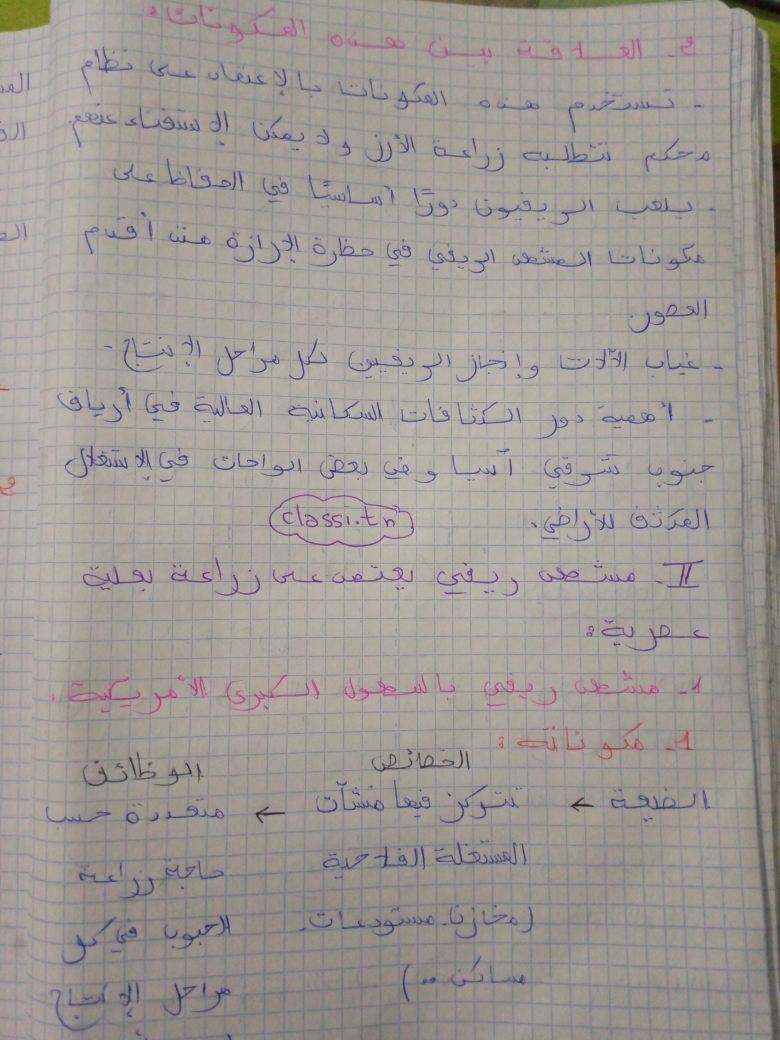 2- العلاقة بين هذه المكونات:
- تستخدم هذه المكونات بالإعتماد على نظام
محكم تتطلبه زراعة الأرز ولا يمكن الإستغناء عنهم
- يلعب الريفيون دورًا أساسيًا في الحفاظ على
مكونات المشهد الريفي في حظرة الرازة منذ أقدم
العصور
- غياب الآلات وإنجاز الريفيين لكل مراحل الإنتاج -
- أهمية دور الكثافات السكانية العالية في أرياف
جنوب شرقي آسيا وفي بعض الواحات في الإستغلال
المكثف للأراضي.
classi.tn
II- مشهد ريفي يعتمد على زراعة بعلية
عصرية:
1- مشهد ريفي بالسهول الكبرى الأمريكية.
1- مكوناته:
الخصائص الوظائف
الضيعة ← تتركز فيها منشآت ← متعددة حسب
المستغلة الفلاحية حاجة زراعة
(مخازن. مستودعات. الحبوب في كل
مساكن ..) مراحل الإنتاج